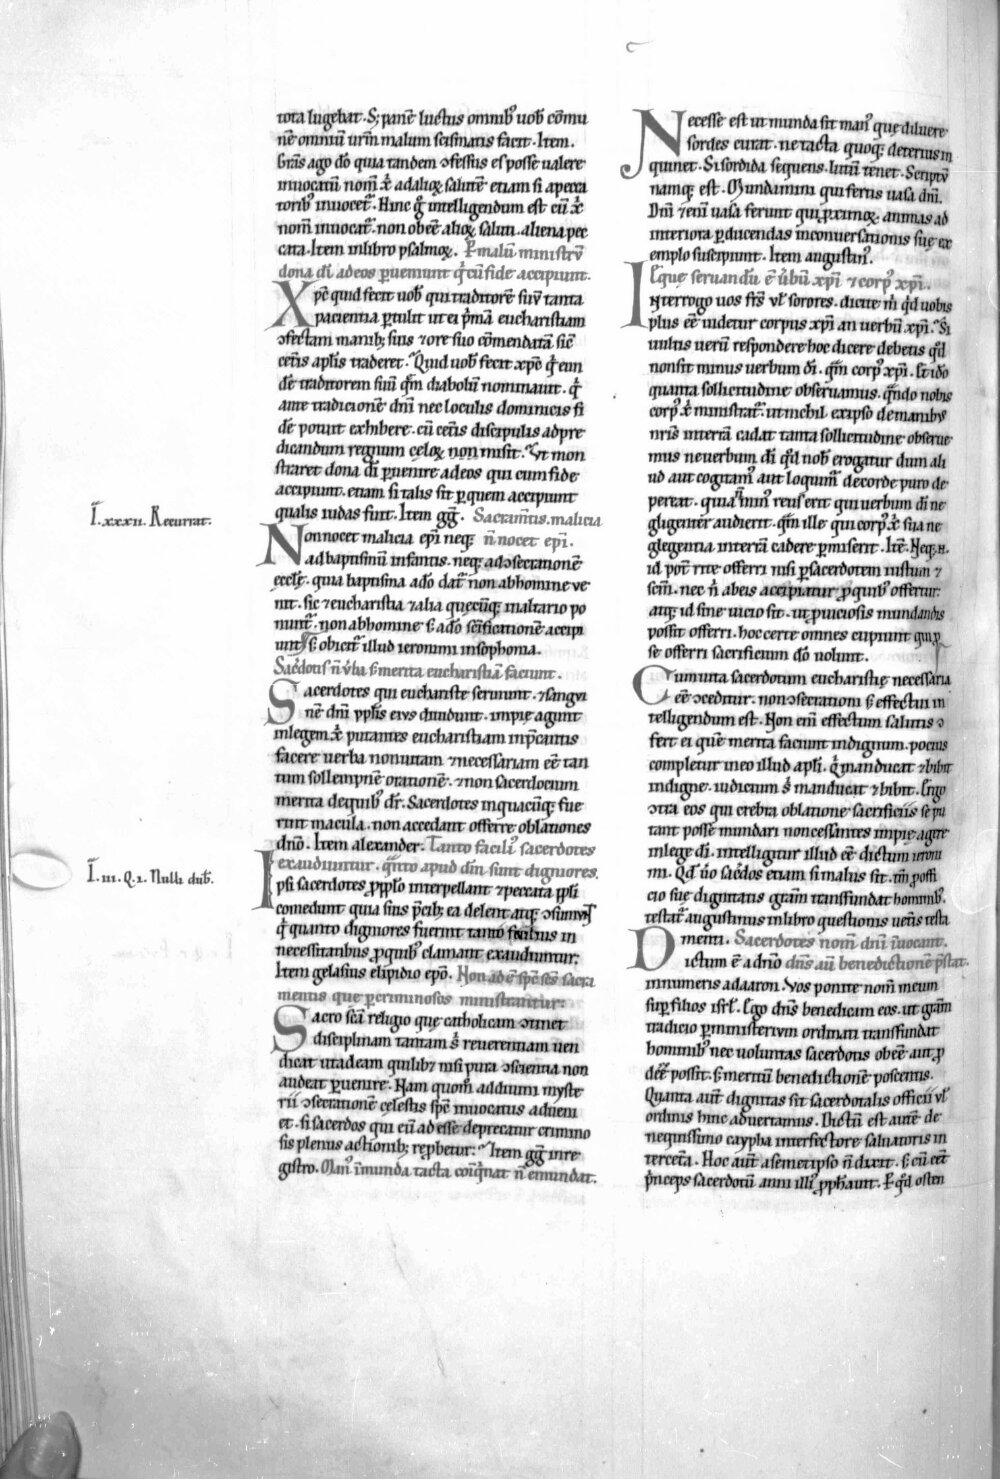 tota lugebat. S; pane luctus omnibꝰ uob̄ cōmu
nē omniū ur̄m malum scismatis facit. Item.
Grās ago dō quia tandem ↄfessus es posse ualere
inuocatū nom̄ xp̄i ad alioꝝ salutē etiam si a pecca
toribꝰ inuocetᷣ. Hinc g̊ intelligendum est cū xp̄i
nom̄ inuocatᷣ. non obēē alioꝝ saluti aliena pec
cata. Item in libro psalmoꝝ. Ꝑ malū ministrū
dona dī ad eos ꝑueniunt qͥ cū fide accipiunt.
Xp̄c quid fecit uob̄ qui traditorē suū tanta
pacientia ꝑtulit ut ei pͥmā eucharistiam
ↄfectam manibꝫ suis ⁊ ore suo cōmendatā sic̄
cet̄is apl̄is traderet. Quid uob̄ fecit xp̄c qͥ eun
dē traditorem suū qm̄ diabolū nominauit. qͥ
ante tradicionē dn̄i nec loculis dominicis fi
dē potuit exhibere. cū cet̄is discipulis ad pre
dicandum regnum cęloꝝ non misit. Vt mon
straret dona dī ꝑuenire ad eos qui cum fide
accipiunt. etiam si talis sit ꝑ quem accipiunt
qualis iudas fuit. Item gg̅. Sacram̄tis malicia
Non nocet malicia ep̄i neqꝫ n̄ nocet ep̄i.
ad baptismū infantis. neqꝫ ad ↄsecrationē
ęcclę. quia baptisma a dō datᷣ. non ab homine ve
nit. sic ⁊ eucharistia ⁊ alia quęcūqꝫ in altario po
nuntᷣ. non ab homine s̄ a dō sc̄ificationē accipi
unt. S̄ obicitᷣ illud ieronimi in sophonia.
Sac̄dotis n̄ v̄ba s̄ merita eucharistiā faciunt.
Sacerdotes qui euchariste seruiunt. ⁊ sangui
nē dn̄i pp̄lis eius diuidunt. impię agunt
in legem xp̄i putantes eucharistiam in p̄cantis
facere uerba non uitam ⁊ necessariam eē tan
tum sollempnē orationē. ⁊ non sacerdocium
merita de quibꝰ dr̄. Sacerdotes in quacūqꝫ fue
rint macula. non accedant offerre oblationes
dn̄o. Item alexander. Tanto faciliꝰ sacerdotes
exaudiuntur. qͣnto apud dn̄m sunt digniores.
Ipsi sacerdotes ꝓ pp̄lo interpellant ⁊ peccata pp̄li
comedunt quia suis p̄cibꝫ ea delent atqꝫ ↄsumūt
qͥ quanto digniores fuerint tanto facilius in
necessitatibus ꝓ quibꝫ clamant exaudiuntur:
Item gelasius elipidio ep̄o. Non adē sp̄c sc̄s sacra
mentis que ꝑ criminosos ministrantur:
Sacro sc̄ā religio quę catholicam ↄtinet
disciplinam tantam s̄ reuerentiam uen
dicat ut ad eam quilibꝫ nisi pura ↄscientia non
audeat ꝑuenire. Nam quom̄ ad diuini myste
rii ↄsecrationē cęlestis sp̄c inuocatus adueni
et. si sacerdos qui eū adesse deprecatur crimino
sis plenus actionibꝫ rep̄betur: Item gg̅ in re
gistro. Manꝰ inmunda tacta coinqͥnat n̄ emundat.
I. xxxii. Recurrat.
I. iii. Q. i. Nulli dub̄.
Necesse est ut munda sit manꝰ quę diluere
sordes curat. ne tacta quoqꝫ deterius in
quinet. Si sordida sequens. lutū tenet. Scriptū
namqꝫ est. Mundamini qui fertis uasa dn̄i.
Dn̄i ⁊enī uasa ferunt qui ꝓximoꝝ animas ad
interiora ꝑducendas in conuersationis suę ex
emplo suscipiunt. Item augustinꝰ.
Eque seruandū ē v̄bū xp̄i ⁊ corpꝰ xp̄i.
Interrogo uos frs̄ vl̄ sorores. dicite m̄ qͥd uobis
plus eē uidetur corpus xp̄i an uerbū xp̄i. Si
uultis uerū respondere hoc dicere debetis qd̄
non sit minus uerbum dī. qm̄ corpꝰ xp̄i. Et idō
quanta sollicitudine obseruamus. qn̄do nobis
corpꝰ xp̄i ministratᷣ. ut nichil ex ipso de manibꝰ
nr̄is in terrā cadat tanta sollicitudine obserue
mus ne uerbum dī qd̄ nob̄ erogatur dum ali
ud aut cogitamꝰ aut loquimᷣ de corde puro de
pereat. quia n̄ minꝰ reus erit qui uerbum dī ne
gligenter audierit. qm̄ ille qui corpꝰ xp̄i sua ne
glegentia in terrā cadere ꝑmiserit. Itē. Neqꝫ .n.
id pot̄ rite offerri nisi ꝑ sacerdotem iustum ⁊
sc̄m. nec n̄ ab eis accipiatur ꝓ quibꝰ offertur:
atqꝫ id sine uicio sit. ut ꝓ uiciosis mundandis
possit offerri. hoc certe omnes cupiunt qui ꝓ
se offerri sacrificium dō uolunt.
Cum uita sacerdotum eucharistię necessaria
eē ↄceditur. non ↄsecrationi s̄ effectui in
telligendum est. Non enī effectum salutis ↄ
fert ei quē merita faciunt indignum. pocius
completur in eo illud apl̄i. qͥ manducat ⁊ bibit
indigne. iudicium s̄ manducat ⁊ bibit. Ergo
ↄtra eos qui crebra oblatione sacrificiis se pu
tant posse mundari non cessantes impię agere
in lege dī. intelligitur illud eē dictum ieroni
mi. Qd̄ ūo sac̄dos etiam si malus sit. tm̄ ꝓ offi
cio suę dignitatis gr̄am transfundat hominibꝰ.
testatᷣ augustinus in libro questionis uet̄is testa
menti. Sacerdotes nom̄ dn̄i inuocant.
Dictum ē a dn̄o dn̄s aū benedictionē p̄stat.
in numeris ad aaron. Vos ponite nom̄ meum
suꝑ filios isrl̄. Ego dn̄s benedicam eos. ut gr̄am
tradicio ꝑ ministerium ordinati transfundat
hominibꝰ nec voluntas sacerdotis obeē aut ꝓ
deē possit. s̄ meritū benedictionē poscentis.
Quanta aut̄ dignitas sit sacerdotalis officii vl̄
ordinis hinc aduertamus. Dictū est autē de
nequissimo caypha interfectore saluatoris in
tercet̄a. Hoc aut̄ a semetipso n̄ dixit. s̄ cū eēt
pͥnceps sacerdotū anni illiꝰ ꝓph̄auit. Ꝑ qd̄ osten